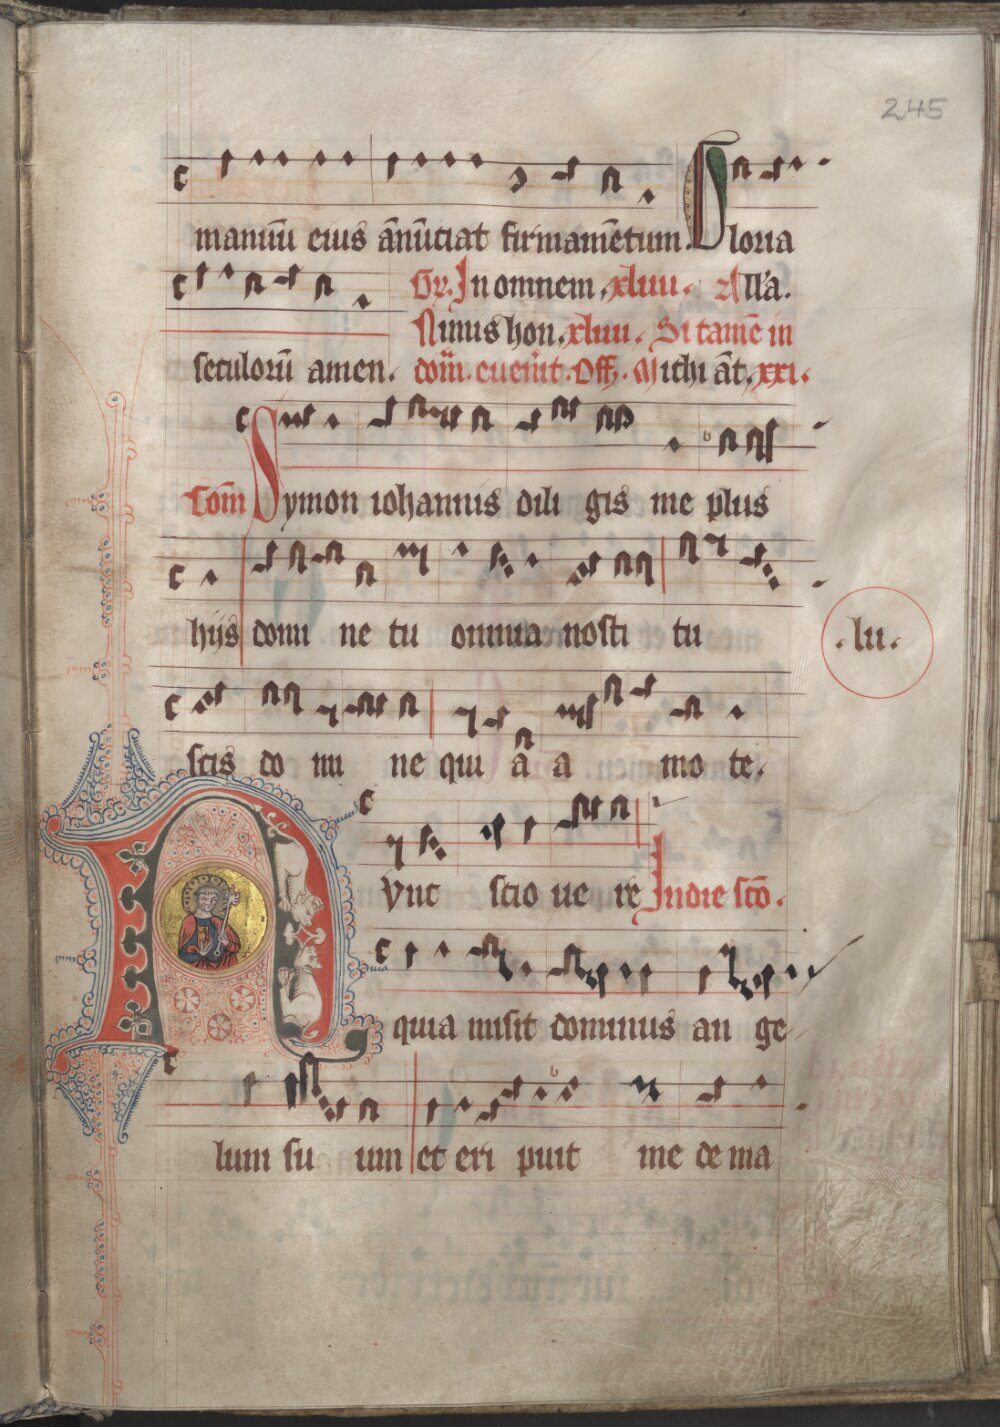 245
manuū eius ān̄ūciat firmamētum. Gloria
Gr. In omnem .xliiii. All'a.
Nimis hon. xliiii. Si tamē in
seculorū amen. dom̄. euen̄it. Off. Michi āt. xxi.
Com̄ Symon iohannis dili gis me plus
hijs domi ne tu omnia nosti tu
.lii.
scis do mi ne qui a a mo te.
Nunc scio ue re In die sc̄o.
quia misit dominus an ge
lum su um et eri puit me de ma